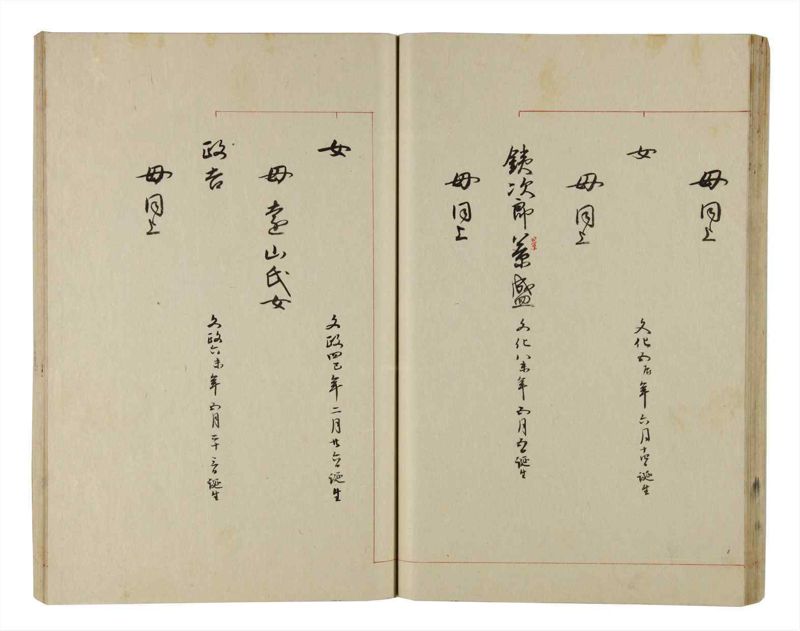 母同上
女 文化五辰年六月十四日誕生
母同上
銕次郎盛 文化八未年五月五日誕生
母同上
女 文政四巳年二月廿六日誕生
母遠山氏女
政吉 文政六未年五月二十日誕生
母同上